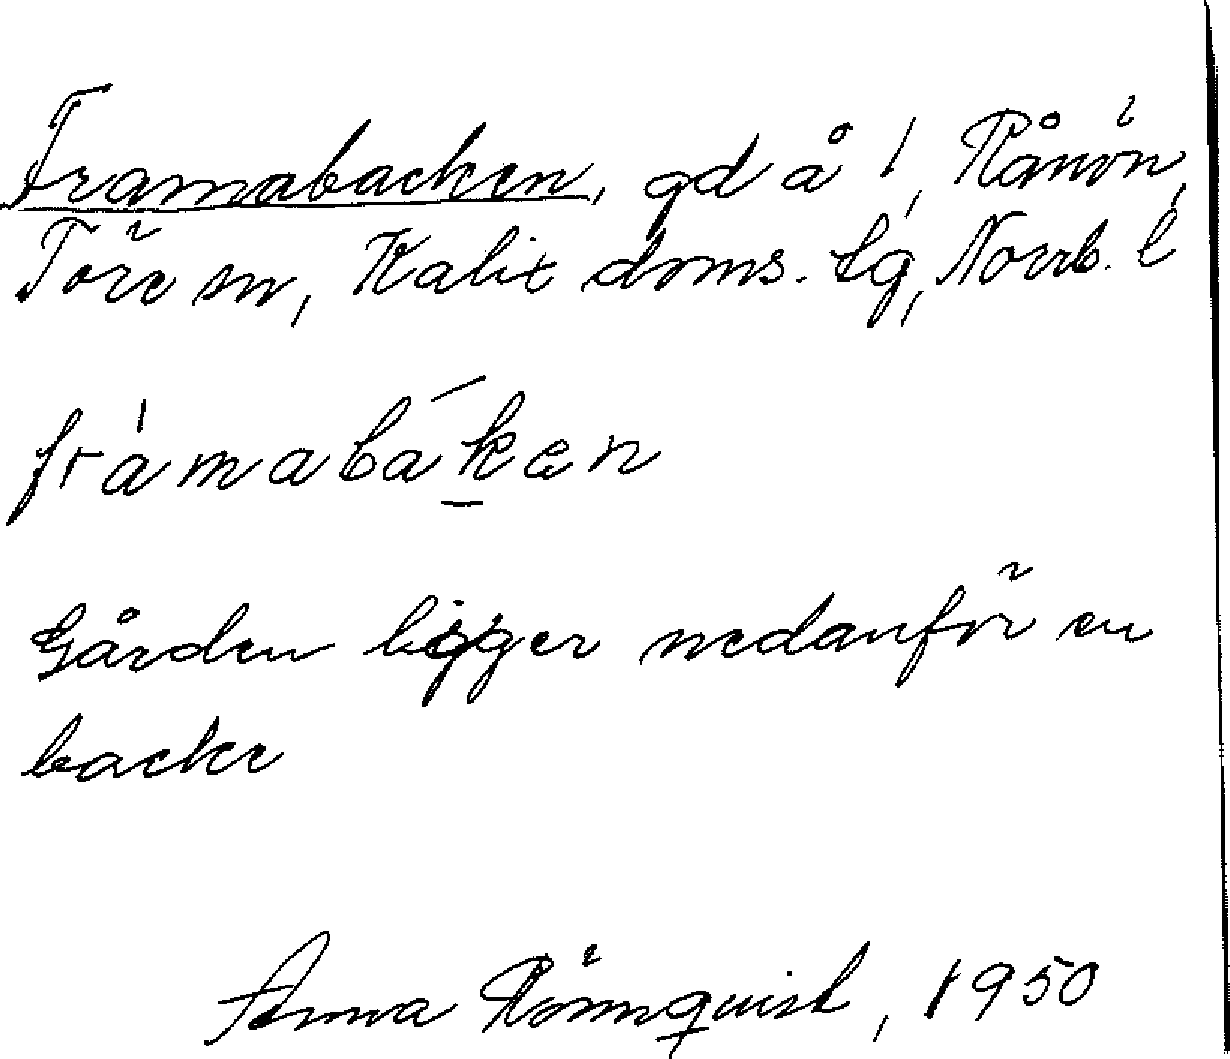 Framabacken, gd å 1, Rånön,
Töre sn, Kalix doms. tg, Norrb. l
frámabáken
Gården ligger nedanför en
backe
Anna Rönnquist, 1950